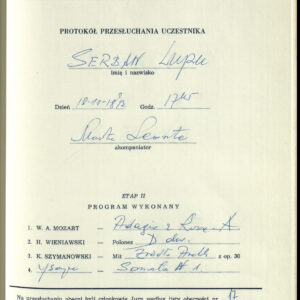 PROTOKÓŁ PRZESŁUCHANIA UCZESTNIKA
SERBAN Lupu
imię i nazwisko
Dzień Godz. 17 45
Marta
akompaniator
ETAP II
PROGRAM WYKONANY
1. W. A. MOZART — Adagio z A
2. H. WIENIAWSKI — Polonez D dur
3. K. SZYMANOWSKI — Mit Źródło Areth. z op. 30
4. Ysaye — Sonata # 1.
Na przesłuchaniu obecni byli członkowie Jury według listy obecności nr 17